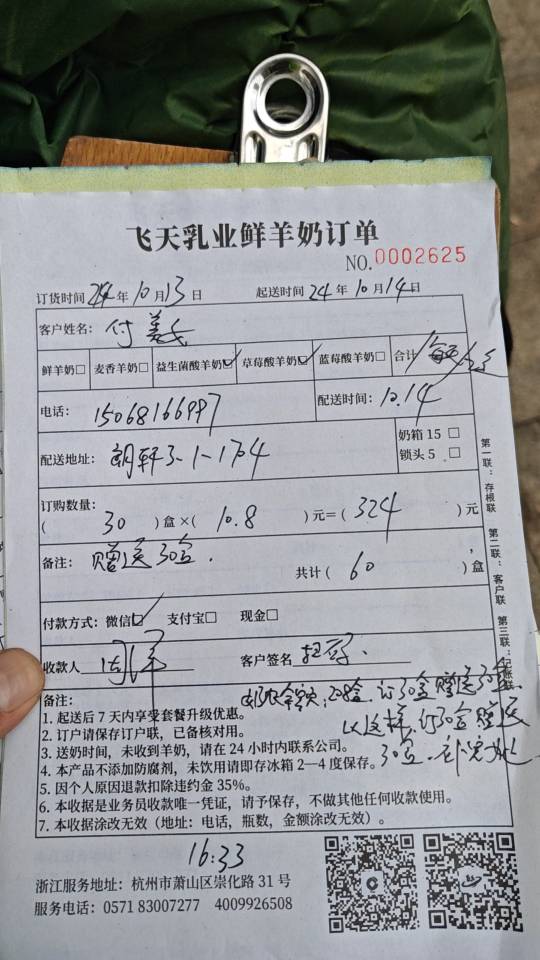 飞天乳业鲜羊奶订单
NO.0002625
订货时间 24年10月13日 起送时间 24年10月14日
客户姓名: 付
鲜羊奶□ 麦香羊奶□ 益生菌酸羊奶☑ 草莓酸羊奶☑ 蓝莓酸羊奶□ 合计
电话: 15068166997 配送时间: 10.14
配送地址: 朗轩3-1-1704 奶箱 15 □
锁头 5 □
订购数量:
( 30 )盒×( 10.8 )元=( 324 )元
备注: 赠送30盒.
共计( 60 )盒
付款方式: 微信☑ 支付宝□ 现金□
收款人 客户签名 扫码.
备注: 订30盒赠送30盒
1. 起送后 7 天内享受套餐升级优惠。 以这样,订30盒赠送
2. 订户请保存订户联，已备核对用。
3. 送奶时间，未收到羊奶，请在 24 小时内联系公司。 30盒.
4. 本产品不添加防腐剂，未饮用请即存冰箱 2—4 度保存。
5. 因个人原因退款扣除违约金 35%。
6. 本收据是业务员收款唯一凭证，请予保存，不做其他任何收款使用。
7. 本收据涂改无效（地址: 电话，瓶数，金额涂改无效）。
16:33
浙江服务地址: 杭州市萧山区崇化路 31 号
服务电话: 0571 83007277 4009926508
第一联: 存根联 第二联: 客户联 第三联: 记账联